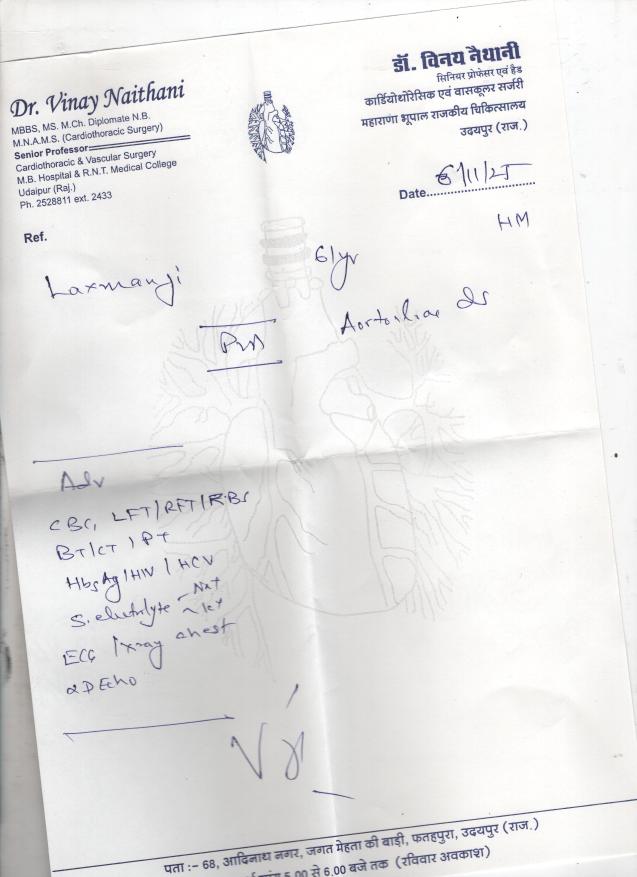 Dr. Vinay Naithani
MBBS, MS. M.Ch. Diplomate N.B.
M.N.A.M.S. (Cardiothoracic Surgery)
Senior Professor
Cardiothoracic & Vascular Surgery
M.B. Hospital & R.N.T. Medical College
Udaipur (Raj.)
Ph. 2528811 ext. 2433
डॉ. विनय नैथानी
सिनियर प्रोफेसर एवं हैड
कार्डियोथोरेसिक एवं वासकूलर सर्जरी
महाराणा भूपाल राजकीय चिकित्सालय
उदयपुर (राज.)
Date 6/11/25
HM
Ref.
Laxmanji 61yr
Aortoiliac ds
Adv
CBC, LFT/RFT/RBS
BT/CT, PT
HbsAg/HIV/HCV
S. electrolyte Na+
K+
ECG / xray chest
2D Echo
पता :- 68, आदिनाथ नगर, जगत मेहता की बाड़ी, फतहपुरा, उदयपुर (राज.)
5.00 से 6.00 बजे तक (रविवार अवकाश)